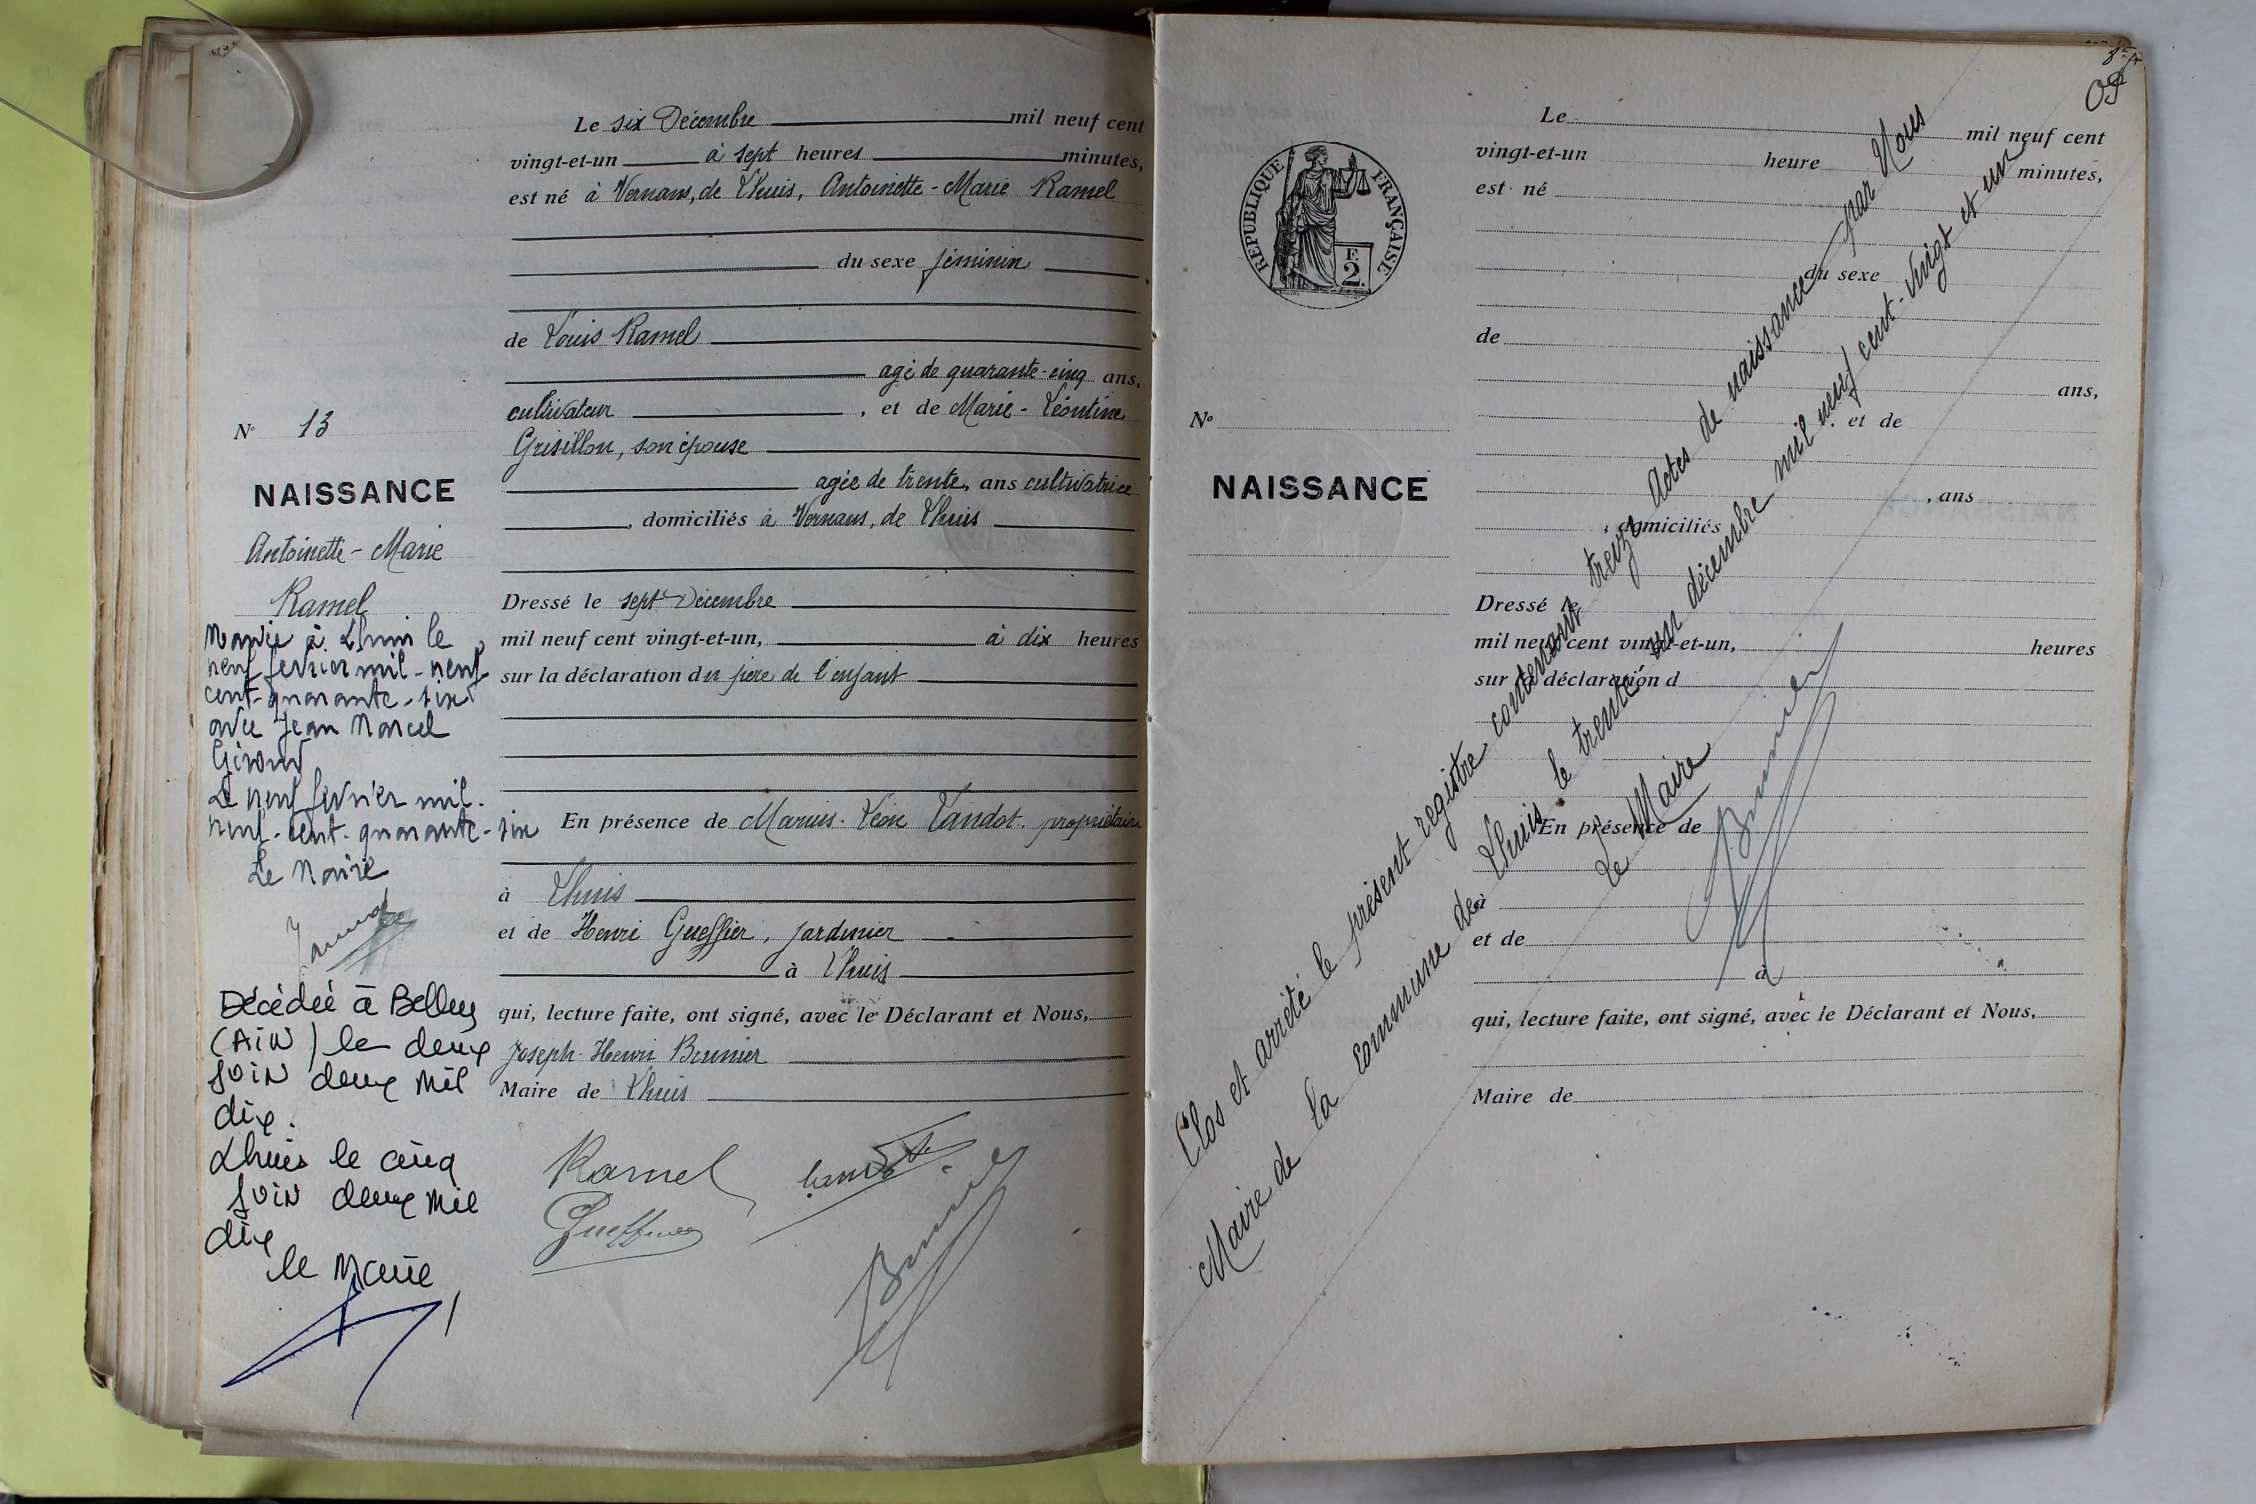 Le six Décembre mil neuf cent
vingt-et-un à sept heures minutes,
est né à Vernans, de Lhuis, Antoinette-Marie Ramel
du sexe féminin
de Louis Ramel
agé de quarante-cinq ans,
cultivateur , et de Marie-Léontine
Grisillon, son épouse
agée de trente, ans cultivatrice
, domiciliés à Vernans, de Lhuis
Dressé le sept Décembre
mil neuf cent vingt-et-un, à dix heures
sur la déclaration du père de l'enfant
En présence de Marius-Léon Landot. propriétaire
à Lhuis
et de Henri Gueffier, jardinier
à Lhuis
qui, lecture faite, ont signé, avec le Déclarant et Nous,
Joseph-Henri Brunier
Maire de Lhuis
Ramel
Landot
Gueffier
Brunier
N° 13
NAISSANCE
Antoinette-Marie
Ramel
Mariée à Lhuis le
neuf fevrier mil-neuf
cent-quarante-six
avec Jean Marcel
Giroud
Le neuf fevrier mil-
neuf-cent-quarante-six
Le Maire
Décédée à Belley
(AIN) le deux
JUIN deux mil
dix.
Lhuis le cinq
JUIN deux mil
dix
le Maire
RÉPUBLIQUE FRANÇAISE
E
2
Le mil neuf cent
vingt-et-un heure minutes,
est né
du sexe
de
ans,
N°
et de
NAISSANCE
, ans
, domiciliés
Dressé le
mil neuf cent vingt-et-un, heures
sur la déclaration d
En présence de
à
et de
à
qui, lecture faite, ont signé, avec le Déclarant et Nous,
Maire de
Clos et arrêté le présent registre contenant treize Actes de naissance par Nous
Maire de la commune de Lhuis le trente un décembre mil neuf cent-vingt et un
Le Maire
Brunier